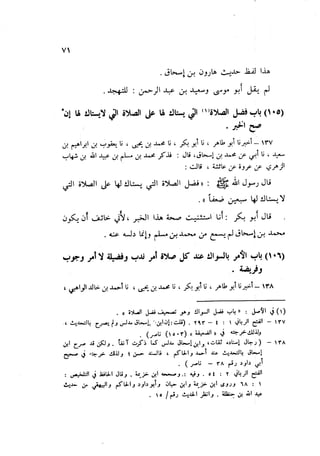 ٧١
هذا لفظ حديث هارون بن إسحاق .
لم يقل أبو موسى وسعيد بن عبد الرحمن : للتهجد .
(١٠٥) باب فضل الصلاة(١) التي يستاك لها على الصلاة التي لايستاك لها إن
صح الخبر .
١٣٧ – أخبرنا أبو طاهر ، نا أبو بكر ، نا محمد بن يحيى ، نا يعقوب بن ابراهيم بن
سعيد ، نا أبي عن محمد بن إسحاق، قال : فذكر محمد بن مسلم بن عبد الله بن شهاب
الزهري عن عروة عن عائشة ، قالت :
قال رسول الله ﷺ : « فضل الصلاة التي يستاك لها على الصلاة التي
لايستاك لها سبعين ضعفاً » .
قال أبو بكر : أنا استثنيت صحة هذا الخبر ، لأني خائف أن يكون
محمد بن إسحاق لم يسمع من محمد بن مسلم وإنما دلسه عنه .
(١٠٦) باب الأمر بالسواك عند كل صلاة أمر ندب وفضيلة لا أمر وجوب
وفريضة .
١٣٨ – أخبرنا أبو طاهر ، نا أبو بكر ، نا محمد بن يحيى ، نا أحمد بن خالد الواهبي ،
(١) في الأصل : « باب فضل السواك وهو تضعيف فضل الصلاة » .
١٣٧ – الفتح الرباني ١ : ٢٩٣ – ٤ . (قلت : إن ابن إسحاق مدلس ولم يصرح بالتحديث ،
ولذلك خرجته في « الضعيفة » (١٥٠٣) ناصر) .
١٣٨ – ( رجال إسناده ثقات ، وابن إسحاق مدلس كما ذكرت آنفاً . ولكن قد صرح ابن
إسحاق بالتحديث عند أحمد والحاكم ، فالسند حسن ؛ ولذلك خرجته في صحيح
أبي داود رقم ٣٨ – ناصر ) .
الفتح الرباني ٢ : ٥٤ . وفيه : وصححه ابن خزيمة . وقال الحافظ في التلخيص :
١ : ٦٨ وروى ابن خزيمة وابن حبان وأبو داود والحاكم والبيهقي من حديث
عبد الله بن حنظلة . وانظر الحديث رقم / ١٥ .